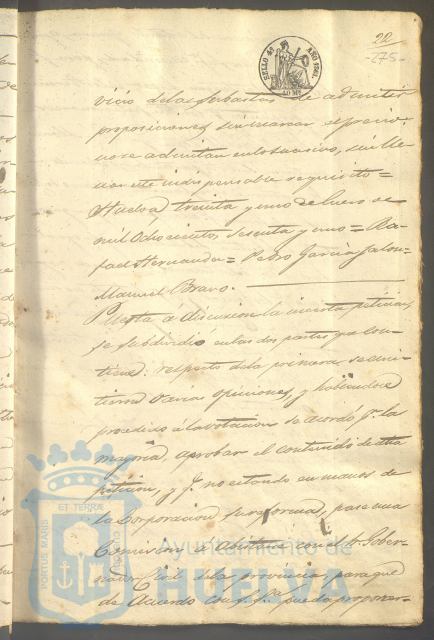 22
275
SELLO 4º AÑO 1861.
40 Ms
vicio de las subastas de admitir
proposiciones sin marcar el precio,
no se admitan en lo sucesivo, sin lle-
var este indispensable requisito =
Huelva treinta y uno de Enero de
mil Ochocientos sesenta y uno = Ra-
fael Hernandez = Pedro Garcia Jalon =
Manuel Bravo.
Puesta a discusion la inserta peticion,
se subdividió en las dos partes que con-
tiene: respecto de la primera se emi-
tieron varias opiniones, y habiendose
procedido á la votacion se acordó pr. la
mayoria aprobar el contenido de dha
peticion, y q. no estando en manos de
la Corporacion su reforma, pase una
Comision á avistarse con el Sr Gober-
nador Civil de la provincia para que
de Acuerdo con S. Sª. pueda proponer-
PORTUS MARIS ET TERRÆ CUSTODIA
Ayuntamiento de
HUELVA